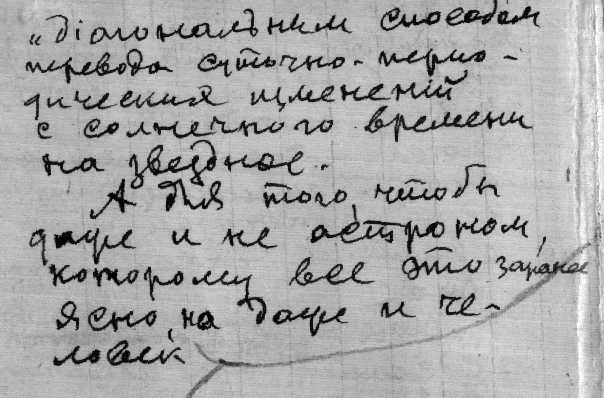 „діагональным способом
перевода суточно-перио-
дических изменений
с солнечного времени
на звездное.
А для того, чтобы
даже и не астроном,
которому все это заранее
ясно, на даже и че-
ловек